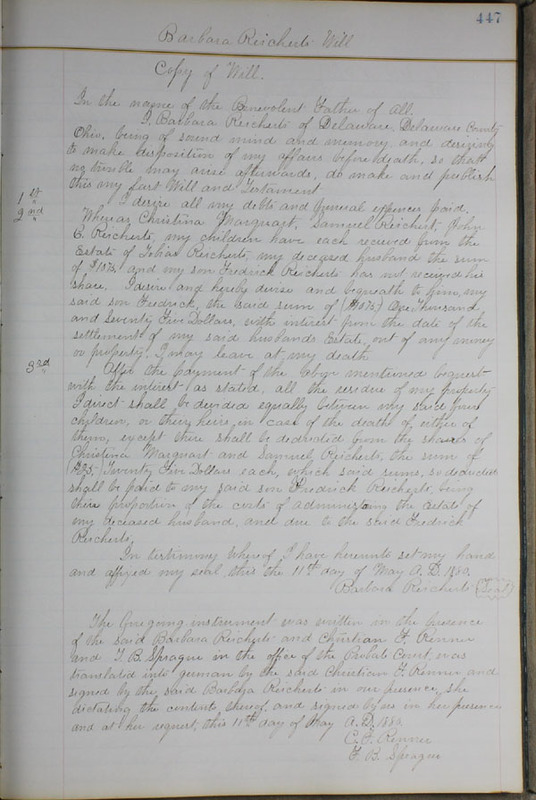 447
Barbara Reicherts Will
Copy of Will.
In the name of the Benevolent Father of All.
I, Barbara Reicherts of Delaware, Delaware County
Ohio, being of sound mind and memory, and desiring
to make disposition of my affairs before death, so that
no trouble may arise afterwards, do make and publish
this my Last Will and Testament.
1st I desire all my debts and funeral expences paid.
2nd Whereas Christina Marquart, Samuel Reichert, John
C. Reicherts, my children have each received from the
Estate of Tobias Reicherts, my deceased husband the sum
of $1075, and my son Fredrick Reicherts has not received his
share. I desire and hereby devise and bequeath to him, my
said son Fredrick, the said sum of ($1075,) One Thousand
and Seventy Five Dollars, with interest from the date of the
settlement of my said husbands Estate, out of any money
or property, I may leave at my death.
3rd After the payment of the above mentioned bequest
with the interest as stated, all the residue of my property
I direct shall be divided equally between my said four
children, or their heirs, in case of the death of either of
them, except there shall be deducted from the shares of
Christina Marquart and Samuel Reicherts, the sum of
($25.-) Twenty Five Dollars each, which said sums, so deducted
shall be paid to my said son Fredrick Reicherts, being
there proportion of the costs of administering the estate of
my deceased husband, and due to the said Fredrich
Reicherts.
In testimony Whereof I have hereunto set my hand
and affixed my seal this the 11th day of May A.D. 1880.
Barbara Reicherts (Seal)
The foregoing instrument was written in the presence
of the said Barbara Reicherts and Christian F. Renner
and F. B. Sprague in the office of the Probate Court, was
translated into german by the said Christian F. Renner and
signed by the said Barbara Reicherts in our presence, she
dictating the contents thereof, and signed by us in her presence
and at her request, this 11th day of May A.D. 1880.
C. F. Renner
F. B. Sprague